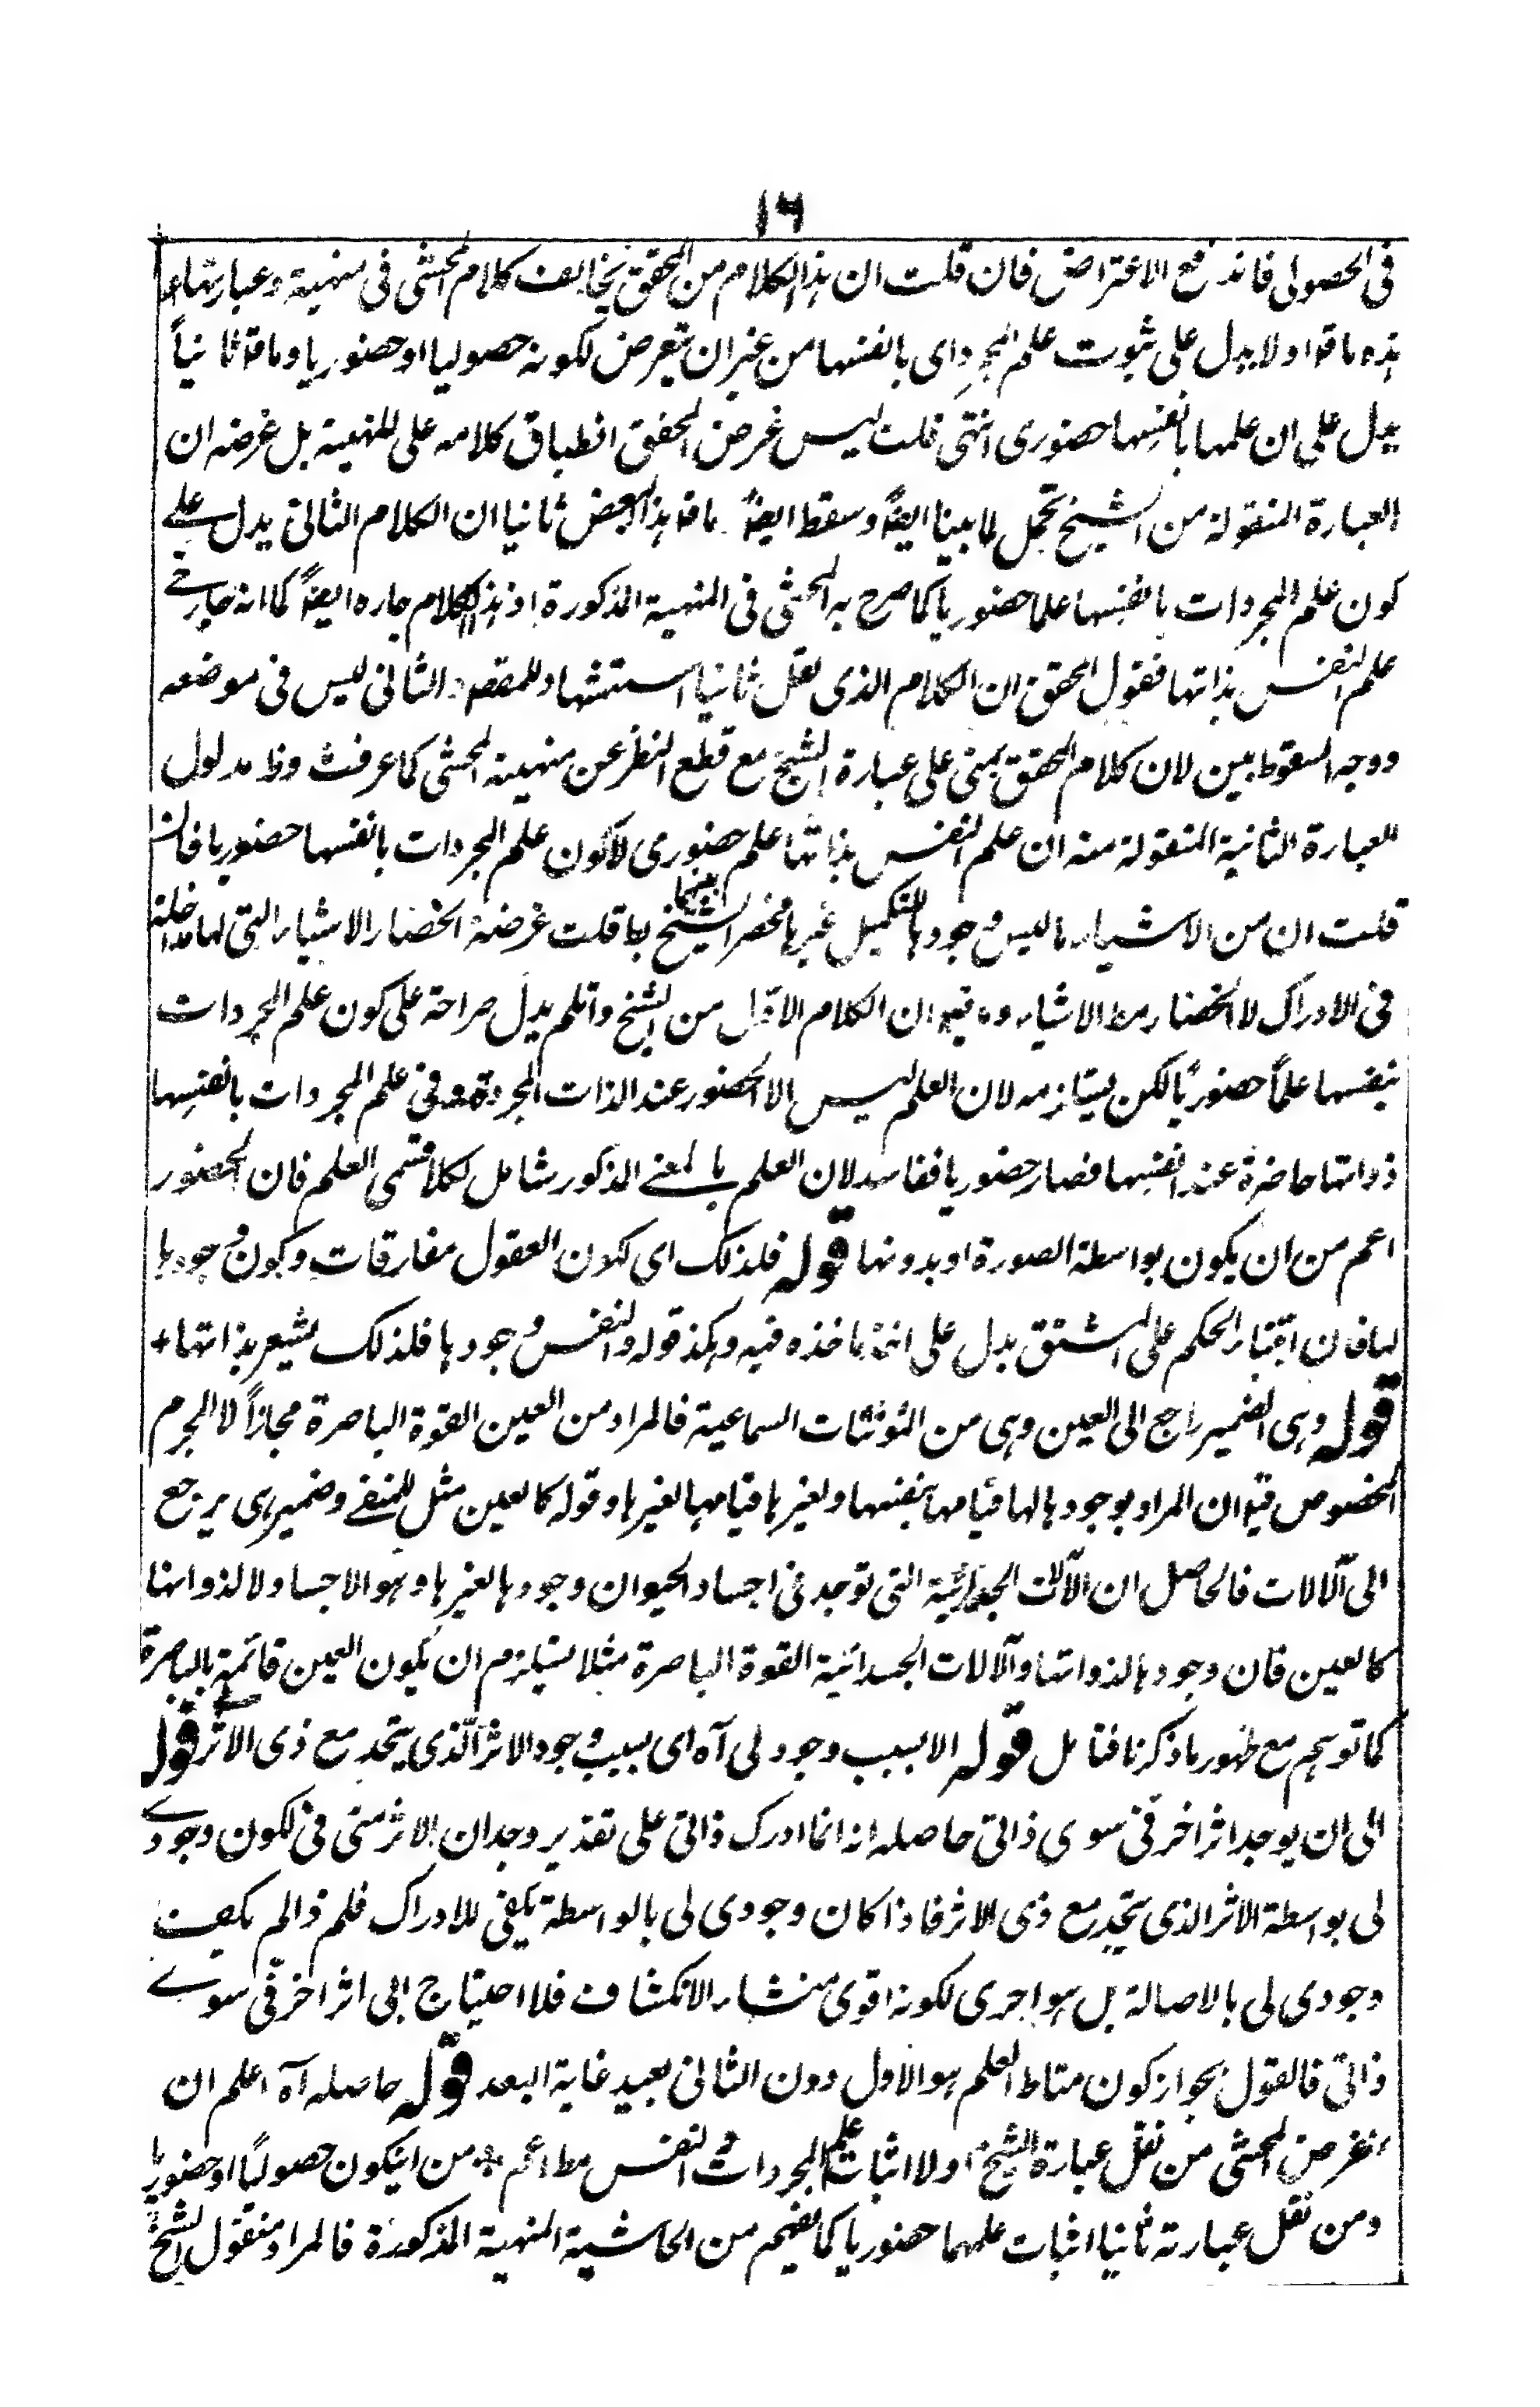 ١٦
فى الحصولى فاندفع الاعتراض فان قلت ان هذا الكلام من المحقق يخالف كلام المحشى فى منهيته وعبارتها
هذه ما قا اولا يدل على ثبوت علم المجرد اى بانفسها من غير ان يتعرض لكونه حصوليا او حضوريا وما قا ثانياً
يدل على ان علمها بانفسها حضورى انتهى قلت ليس غرض المحقق انطباق كلامه على المنهية بل غرضه ان
العبارة المنقولة من الشيخ تحمل لما بينا ايضاً وسقط ايضاً ما قا هذا البعض ثانيا ان الكلام الثانى يدل على
كون علم المجردات بانفسها علما حضوريا كما صرح به المحشى فى المنهية المذكورة اذ هذا الكلام جار ه ايضاً كما انه جار فى
علم النفس بذاتها فقول المحقق ان الكلام الذى نقل ثانيا استشهاد للمقصد الثانى ليس فى موضعه
ووجه السقوط بين لان كلام المحقق بمنى على عبارة الشيخ مع قطع النظر عن منهية المحشى كما عرفت وظ مدلول
العبارة الثانية المنقولة منه ان علم النفس بذاتها علم حضورى لا كون علم المجردات بانفسها حضوريا فان
قلت ان من الاشياء ما ليس وجودها للتكميل غيرها فحصر الشيخ قلت غرضه انحضار الاشياء التى لها مداخلة
فى الادراك لا انحضار مط الاشياء وما قيل ان الكلام الاول من الشيخ وان لم يدل صراحة على كون علم المجردات
بنفسها علماً حضورياً لكن يستلزمه لان العلم ليس الا الحضور عند الذات المجردة وفى علم المجردات بانفسها
ذواتها حاضرة عند انفسها فصار حضوريا ففاسد لان العلم بالمعنے المذكور شامل لكلا قسمى العلم فان الحضور
اعم من ان يكون بواسطة الصورة او بدونها قوله فلذلك اى لكون العقول مفارقات وكون وجودها
لها فان اعتبار الحكم على المشتق يدل على اخذ ماخذه فيه وهكذا قوله والنفس وجودها فلذلك يشعر بذاتها +
قوله وهى الضمير راجع الى العين وهى من المؤنثات السماعية فالمراد من العين القوة الباصرة مجازاً لا الجرم
المخصوص قيل ان المراد بوجودها لها قيامها بنفسها ولغيرها قيامها لغيرها وقوله كالعين مثل للمنفے وضمير هى يرجع
الى آلالات فالحاصل ان الآلات الجسدانية التى توجد فى اجساد الحيوان وجودها لغيرها وهو الاجساد لا لذواتها
كالعين فان وجودها لذواتها وآلالات الجسدانية القوة الباصرة مثلا يستلزم ان يكون العين قائمة بالباصرة
كما توهم مع ظهور ما ذكرنا فتامل قوله الا بسبب وجود لى آه اى بسبب وجود الاثر الذى يتحد مع ذى الاثر قوله
الى ان يوجد اثر اخر فى سوى ذاتى حاصله انه انما ادرك ذاتى على تقدير وجدان الاثر منى فى لكون وجودے
لى بواسطة الاثر الذى يتحد مع ذى الاثر فاذا كان وجودى لى بالواسطة يكفى للادراك فلم ذا لم يكف
وجودى لى بالاصالة بل هو احرى لكونه اقوى منشاء الانكشاف فلا احتياج الى اثر اخر فى سوے
ذاتى فالقول بجواز كون مناط العلم هو الاول دون الثانى بعيد غاية البعد قوله حاصله آه اعلم ان
غرض المحشى من نقل عبارة الشيخ اولا اثبات علم المجردات والنفس مط اعم * من ان يكون حصولياً او حضوريا
ومن نقل عبارته ثانيا اثبات علمهما حضوريا كما يفهم من الحاشية المنهية المذكورة فالمراد منقول الشيخ